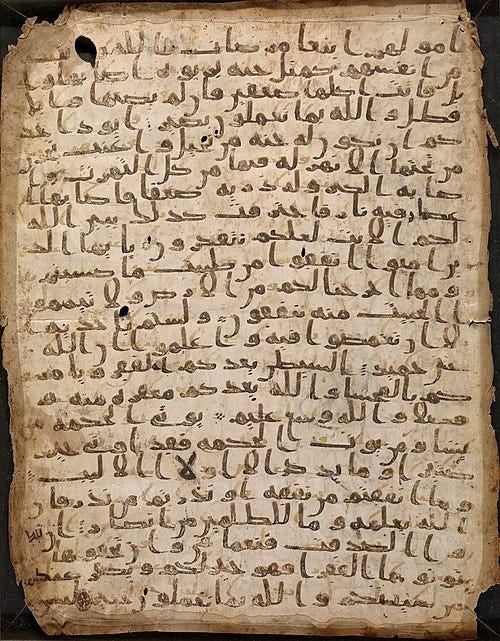 امولهم ابتغا مرضات الله وتثبيتا
من انفسهم كمثل جنة بربوة اصابها وا
بل فاتت اكلها ضعفين فان لم يصبها وابل
فطل والله بما تعملون بصير ايود احد
كم ان تكون له جنة من نخيل واعنب تجري
من تحتها الانهر له فيها من كل الثمرت وا
صابه الكبر وله ذرية ضعفا فاصابها ا
عصار فيه نار فاحترقت كذلك يبين الله
لكم الايت لعلكم تتفكرون يايها الذ
ين امنوا انفقوا من طيبت ما كسبتم
ومما اخرجنا لكم من الارض ولا تيمموا
الخبيث منه تنفقون ولستم باخذيه ا
لا ان تغمضوا فيه واعلموا ان الله
غني حميد الشيطن يعدكم الفقر ويامر
كم بالفحشا والله يعدكم مغفرة منه و
فضلا والله وسع عليم يوتي الحكمة من
يشا ومن يوت الحكمة فقد اوتي خيرا
كثيرا وما يذكر الا اولوا الالبب
وما انفقتم من نفقة او نذرتم من نذر فان
الله يعلمه وما للظلمين من انصار ان تبد
وا الصدقت فنعما هي وان تخفوها و
توتوها الفقرا فهو خير لكم ويكفر عنكم
من سيتكم والله بما تعملون خبير ليس